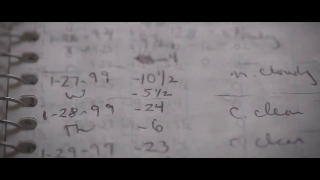 -4
1-27-99 -10 1/2 m. cloudy
W -5 1/2
1-28-99 -24 c. clear
Th -6
1-29-99 -23 clear